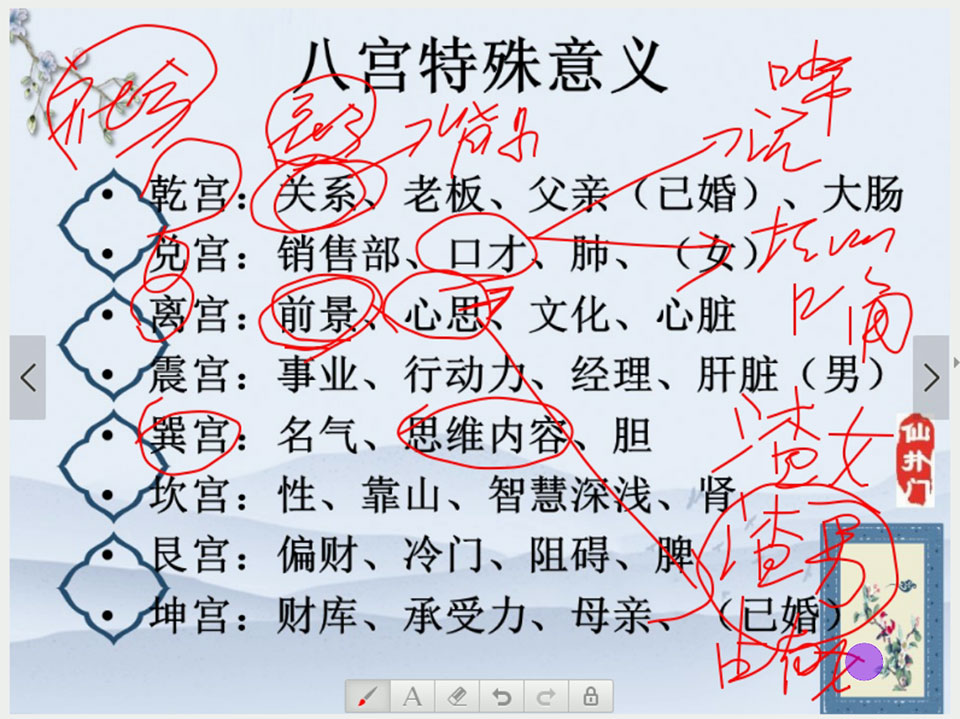 八宫特殊意义
乾宫：关系、老板、父亲（已婚）、大肠
兑宫：销售部、口才、肺、（女）
离宫：前景、心思、文化、心脏
震宫：事业、行动力、经理、肝脏（男）
巽宫：名气、思维内容、胆
坎宫：性、靠山、智慧深浅、肾
艮宫：偏财、冷门、阻碍、脾
坤宫：财库、承受力、母亲、（已婚）
口角
渣女
渣男
A